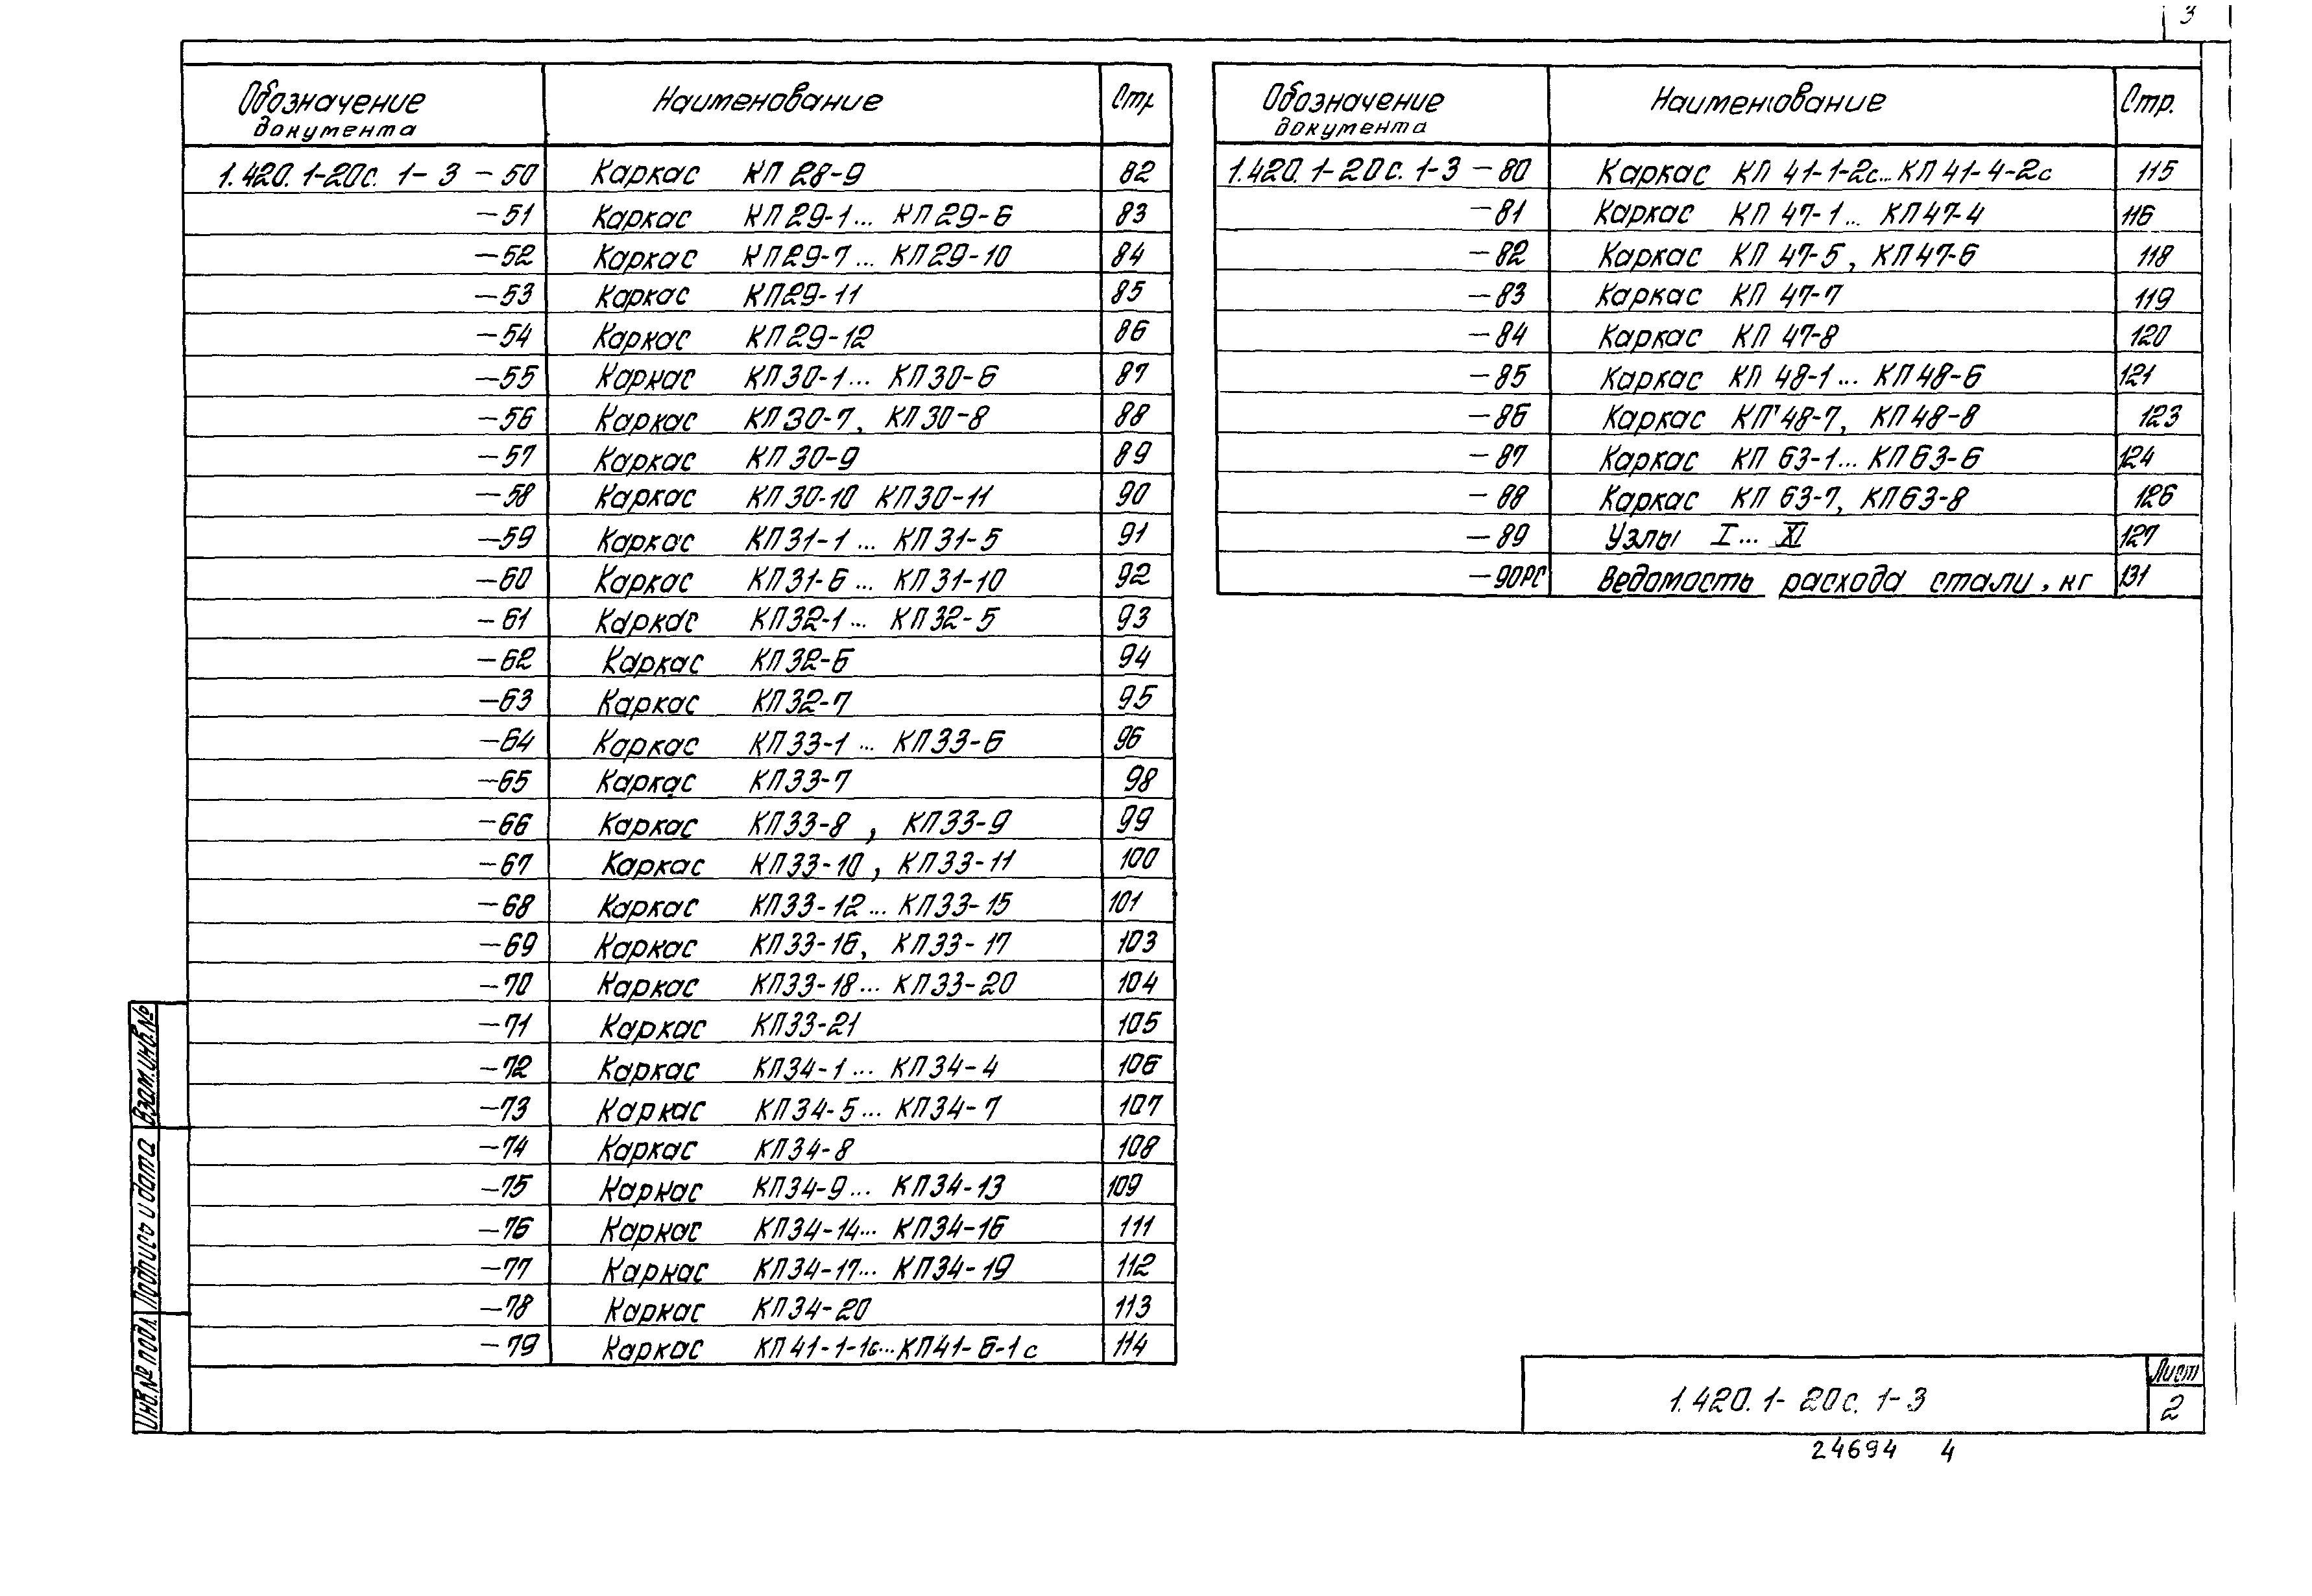 3
Обозначение документа Наименование Стр
1.420.1-20с. 1-3 -50 Каркас КП 28-9 82
-51 Каркас КП29-1... КП29-6 83
-52 Каркас КП29-7... КП29-10 84
-53 Каркас КП29-11 85
-54 Каркас КП29-12 86
-55 Каркас КП30-1... КП30-6 87
-56 Каркас КП30-7, КП30-8 88
-57 Каркас КП30-9 89
-58 Каркас КП30-10 КП30-11 90
-59 Каркас КП31-1 ... КП31-5 91
-60 Каркас КП31-6 ... КП31-10 92
-61 Каркас КП32-1... КП32-5 93
-62 Каркас КП32-6 94
-63 Каркас КП32-7 95
-64 Каркас КП33-1 ... КП33-6 96
-65 Каркас КП33-7 98
-66 Каркас КП33-8 , КП33-9 99
-67 Каркас КП33-10 , КП33-11 100
-68 Каркас КП33-12... КП33-15 101
-69 Каркас КП33-16, КП33-17 103
-70 Каркас КП33-18... КП33-20 104
-71 Каркас КП33-21 105
-72 Каркас КП34-1... КП34-4 106
-73 Каркас КП34-5... КП34-7 107
-74 Каркас КП34-8 108
-75 Каркас КП34-9... КП34-13 109
-76 Каркас КП34-14... КП34-16 111
-77 Каркас КП34-17... КП34-19 112
-78 Каркас КП34-20 113
-79 Каркас КП41-1-1с...КП41-6-1с 114
Обозначение документа Наименование Стр.
1.420.1-20с. 1-3 -80 Каркас КП 41-1-2с...КП41-4-2с 115
-81 Каркас КП 47-1... КП47-4 116
-82 Каркас КП 47-5, КП47-6 118
-83 Каркас КП 47-7 119
-84 Каркас КП 47-8 120
-85 Каркас КП 48-1... КП48-6 121
-86 Каркас КП 48-7, КП48-8 123
-87 Каркас КП 63-1... КП63-6 124
-88 Каркас КП 63-7, КП63-8 126
-89 Узлы I... XI 127
-90РС Ведомость расхода стали, кг 131
Взам.инв.№
Подпись и дата
Инв.№ подл.
1.420.1-20с. 1-3
Лист
2
24694 4